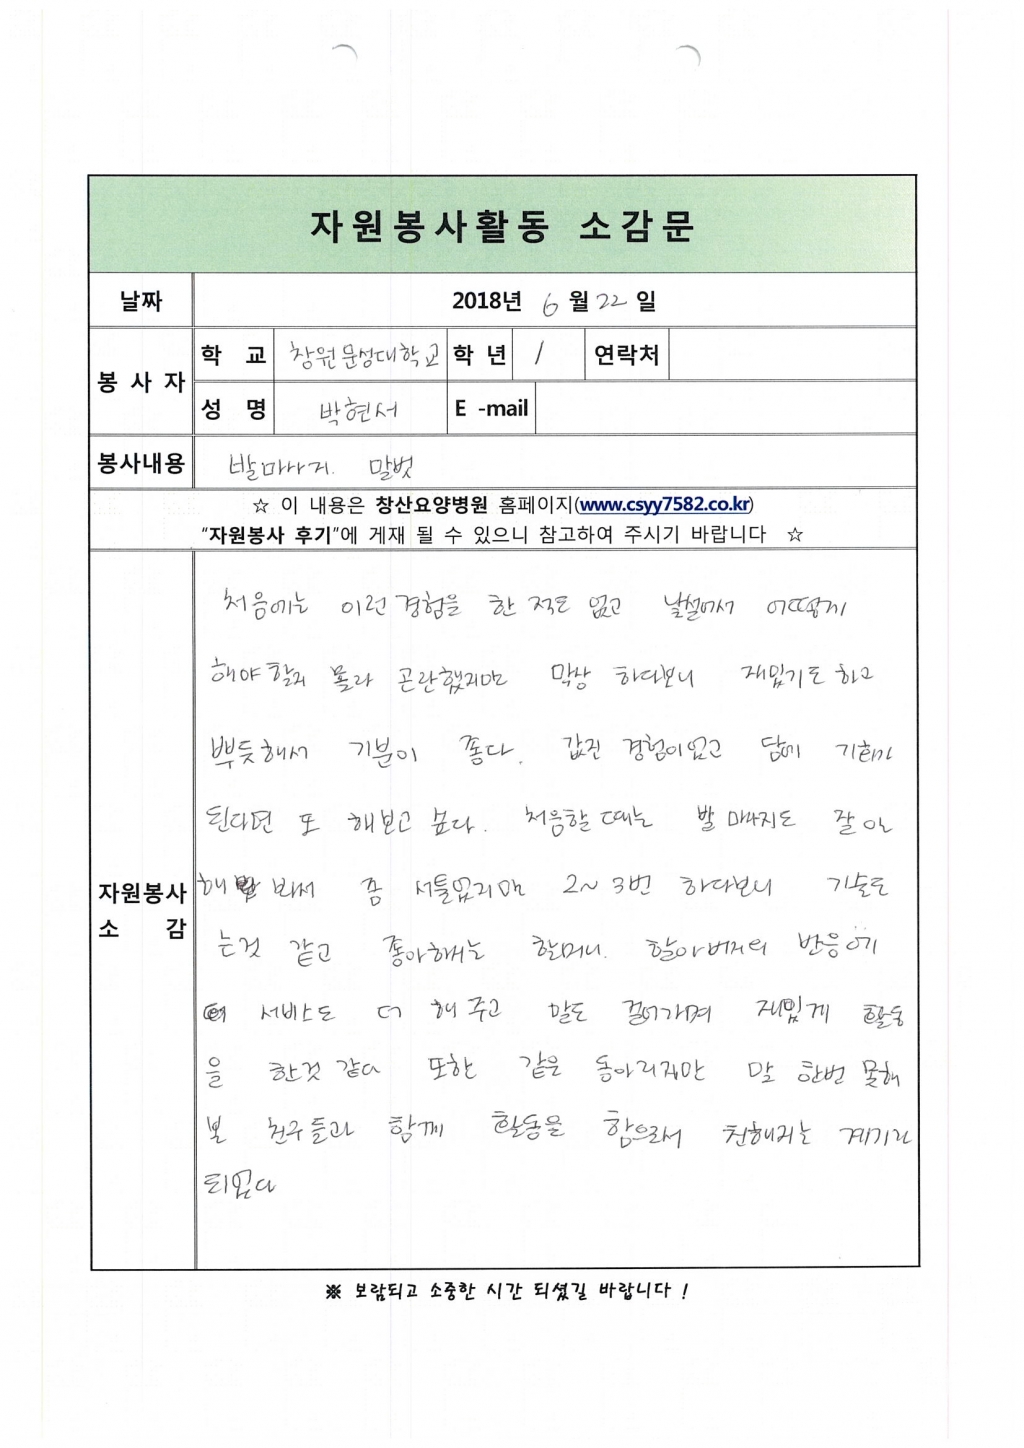 자원봉사활동 소감문
날짜 2018년 6 월 22 일
봉 사 자
학 교 창원문성대학교 학 년 1 연락처
성 명 박현서 E -mail
봉사내용 발마사지. 말벗
☆ 이 내용은 창산요양병원 홈페이지(www.csyy7582.co.kr)
“자원봉사 후기”에 게재 될 수 있으니 참고하여 주시기 바랍니다 ☆
자원봉사
소 감
처음에는 이런 경험을 한 적도 없고 낯설어서 어떻게
해야 할지 몰라 곤란했지만 막상 하다보니 재밌기도 하고
뿌듯해서 기분이 좋다. 값진 경험이었고 담에 기회가
된다면 또 해보고 싶다. 처음할 때는 발 마사지도 잘 안
해 봐서 좀 서툴었지만 2~3번 하다보니 기술도
는것 같고 좋아해시는 할머니. 할아버지의 반응에
서비스도 더 해 주고 말도 걸어가며 재밌게 활동
을 한것 같다 또한 같은 동아리지만 말 한번 못해
본 친구들과 함께 활동을 함으로서 친해지는 계기가
되었다
※ 보람되고 소중한 시간 되셨길 바랍니다 !